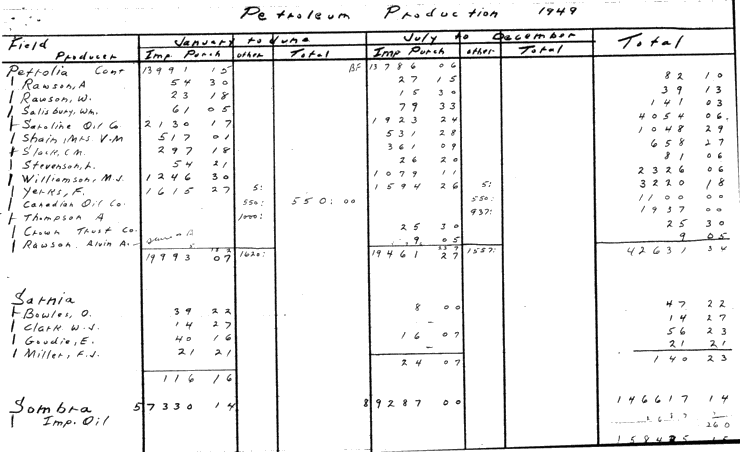 Petroleum Production 1949
Field January to June July to December Total
Producer Imp. Purch other Total Imp Purch other Total
Petrolia Cont 13991 15 BF 13786 06
Rawson, A 54 30 27 15 82 10
Rawson, W. 23 18 15 30 39 13
Salisbury, Wm. 61 05 79 33 141 03
Saroline Oil Co 2130 17 1923 24 4054 06
Shain, Mrs V.M 517 01 531 28 1048 29
Slack, C.M. 297 18 361 09 658 27
Stevenson, L. 54 21 26 20 81 06
Williamson, M.J. 1246 30 1079 11 2326 06
Yerks, F. 1615 27 5: 1594 26 5: 3220 18
Canadian Oil Co. 550: 550: 00 550: 1100 00
Thompson A 1000: 937: 1937 00
Crown Trust Co. 25 30 25 30
Rawson, Alvin A. 9 05 9 05
19993 07 1620: 19461 27 1557: 42631 34
Sarnia
Bowles, O. 39 22 8 00 47 22
Clark W.J. 14 27 — 14 27
Goudie, E. 40 16 16 07 56 23
Miller, F.J. 21 21 21 21
24 07 140 23
116 16
Sombra 57330 14 89287 00 146617 14
Imp. Oil 260
15